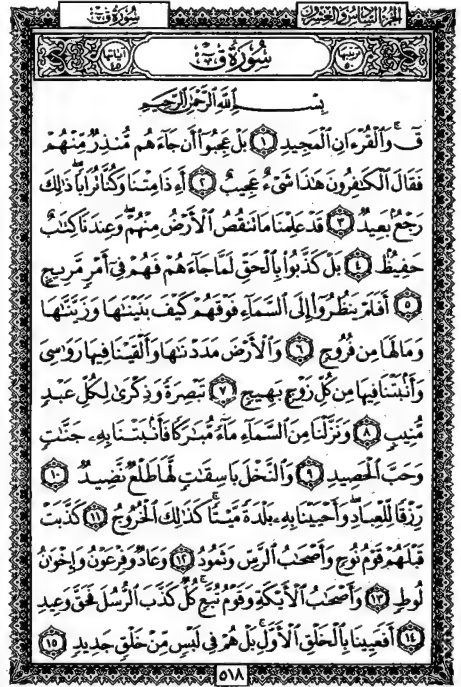 الجزء السادس والعشرون سورة ق
ترتيبها ٥٠ سورة ق آياتها ٤٥
بِسْمِ ٱللَّهِ ٱلرَّحْمَٰنِ ٱلرَّحِيمِ
قٓ ۚ وَٱلْقُرْءَانِ ٱلْمَجِيدِ ١ بَلْ عَجِبُوٓا۟ أَن جَآءَهُم مُّنذِرٌ مِّنْهُمْ
فَقَالَ ٱلْكَٰفِرُونَ هَٰذَا شَىْءٌ عَجِيبٌ ٢ أَءِذَا مِتْنَا وَكُنَّا تُرَابًا ۖ ذَٰلِكَ
رَجْعٌۢ بَعِيدٌ ٣ قَدْ عَلِمْنَا مَا تَنقُصُ ٱلْأَرْضُ مِنْهُمْ ۖ وَعِندَنَا كِتَٰبٌ
حَفِيظٌۢ ٤ بَلْ كَذَّبُوا۟ بِٱلْحَقِّ لَمَّا جَآءَهُمْ فَهُمْ فِىٓ أَمْرٍ مَّرِيجٍ
٥ أَفَلَمْ يَنظُرُوٓا۟ إِلَى ٱلسَّمَآءِ فَوْقَهُمْ كَيْفَ بَنَيْنَٰهَا وَزَيَّنَّٰهَا
وَمَا لَهَا مِن فُرُوجٍ ٦ وَٱلْأَرْضَ مَدَدْنَٰهَا وَأَلْقَيْنَا فِيهَا رَوَٰسِىَ
وَأَنۢبَتْنَا فِيهَا مِن كُلِّ زَوْجٍۭ بَهِيجٍ ٧ تَبْصِرَةً وَذِكْرَىٰ لِكُلِّ عَبْدٍ
مُّنِيبٍ ٨ وَنَزَّلْنَا مِنَ ٱلسَّمَآءِ مَآءً مُّبَٰرَكًا فَأَنۢبَتْنَا بِهِۦ جَنَّٰتٍ
وَحَبَّ ٱلْحَصِيدِ ٩ وَٱلنَّخْلَ بَاسِقَٰتٍ لَّهَا طَلْعٌ نَّضِيدٌ ١٠
رِّزْقًا لِّلْعِبَادِ ۖ وَأَحْيَيْنَا بِهِۦ بَلْدَةً مَّيْتًا ۚ كَذَٰلِكَ ٱلْخُرُوجُ ١١ كَذَّبَتْ
قَبْلَهُمْ قَوْمُ نُوحٍ وَأَصْحَٰبُ ٱلرَّسِّ وَثَمُودُ ١٢ وَعَادٌ وَفِرْعَوْنُ وَإِخْوَٰنُ
لُوطٍ ١٣ وَأَصْحَٰبُ ٱلْأَيْكَةِ وَقَوْمُ تُبَّعٍ ۚ كُلٌّ كَذَّبَ ٱلرُّسُلَ فَحَقَّ وَعِيدِ
١٤ أَفَعَيِينَا بِٱلْخَلْقِ ٱلْأَوَّلِ ۚ بَلْ هُمْ فِى لَبْسٍ مِّنْ خَلْقٍ جَدِيدٍ ١٥
٥١٨